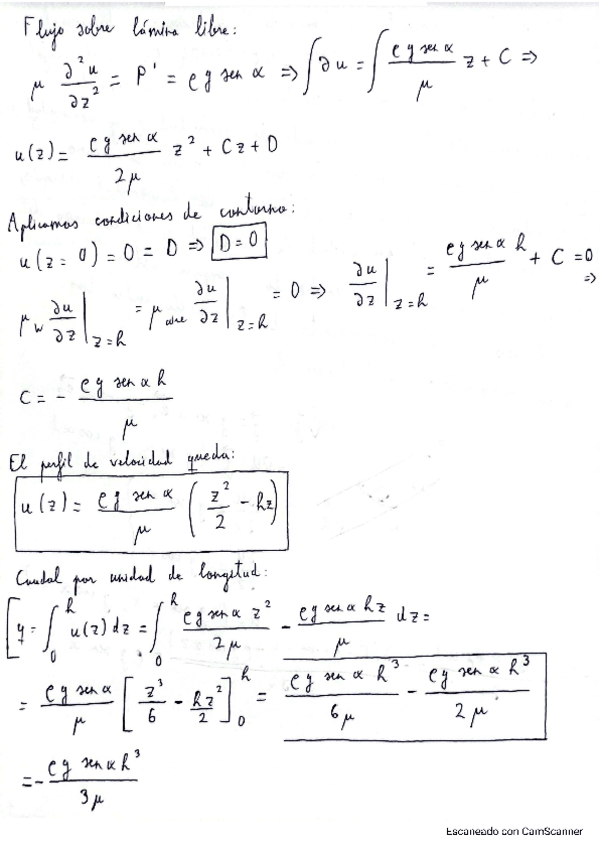 Flujo sobre lámina libre:
μ ∂²u/∂z² = P' = ρ g sen α => ∫∂u = ∫ (ρ g sen α)/μ z + C =>
u(z) = (ρ g sen α)/(2μ) z² + Cz + D
Aplicamos condiciones de contorno:
u(z = 0) = 0 = D => D = 0
μ_w ∂u/∂z |_{z=h} = μ_aire ∂u/∂z |_{z=h} = 0 => ∂u/∂z |_{z=h} = (ρ g sen α h)/μ + C = 0 =>
C = - (ρ g sen α h)/μ
El perfil de velocidad queda:
u(z) = (ρ g sen α)/μ (z²/2 - hz)
Caudal por unidad de longitud:
[q = ∫₀ʰ u(z) dz = ∫₀ʰ (ρ g sen α z²)/(2μ) - (ρ g sen α hz)/μ dz =
= (ρ g sen α)/μ [z³/6 - hz²/2]₀ʰ = (ρ g sen α h³)/(6μ) - (ρ g sen α h³)/(2μ)
= - (ρ g sen α h³)/(3μ)
Escaneado con CamScanner